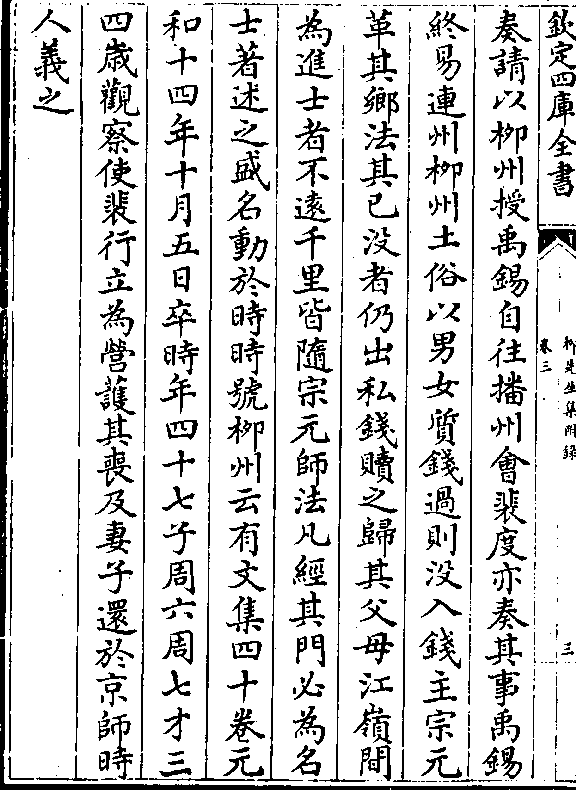 欽定四庫全書
柳先生集附錄
卷三
三
奏請以柳州授禹錫自往播州會裴度亦奏其事禹錫
終易連州柳州土俗以男女質錢過則没入錢主宗元
革其鄉法其已没者仍出私錢贖之歸其父母江嶺間
為進士者不遠千里皆隨宗元師法凡經其門必為名
士著述之盛名動於時時號柳州云有文集四十卷元
和十四年十月五日卒時年四十七子周六周七才三
四歲觀察使裴行立為營護其喪及妻子還於京師時
人義之